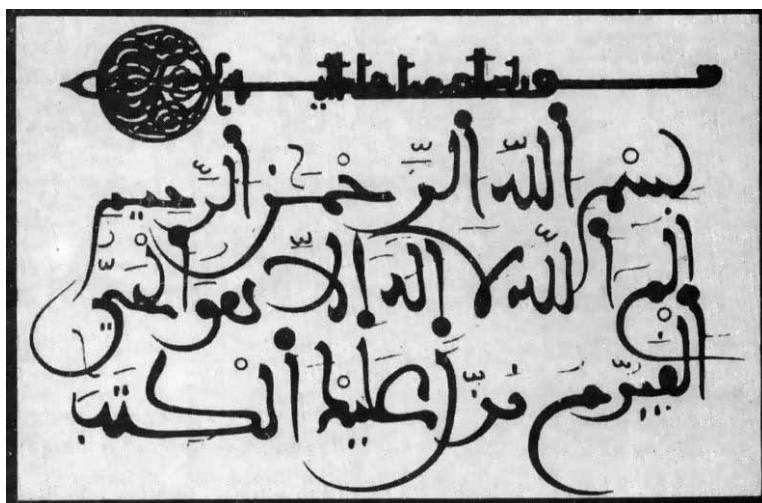 بسم الله الرحمن الرحيم
الم الله لا اله الا هو الحي
القيوم نزل عليك الكتب